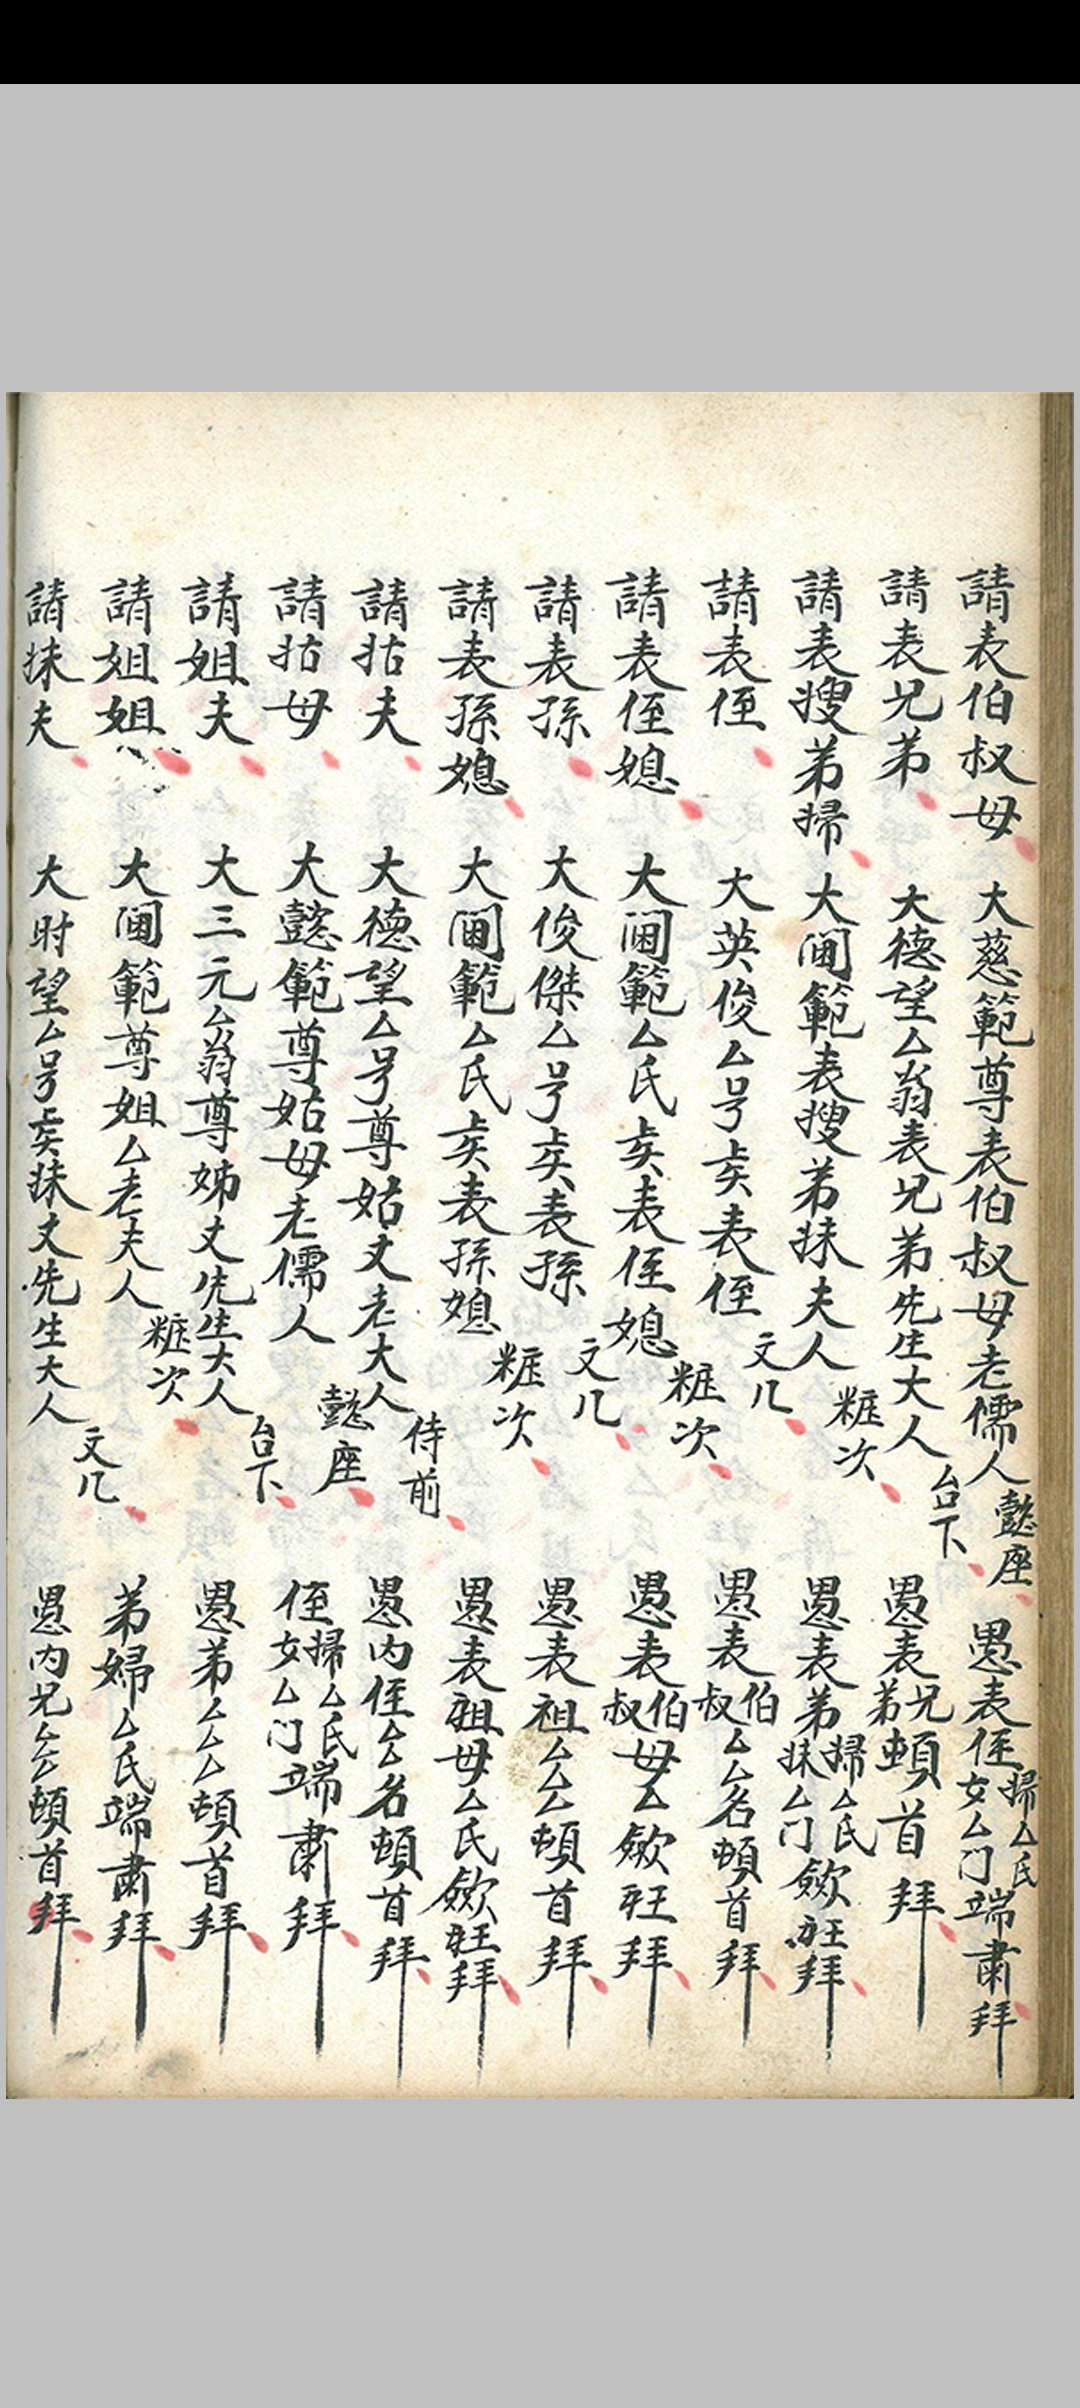 請表伯叔母 大慈範尊表伯叔母老儒人 懿座 愚表侄婦厶氏女厶门端肅拜
請表兄弟 大德望厶翁表兄弟先生大人 台下 愚表兄弟頓首拜
請表嫂弟婦 大阃範表嫂弟妹夫人 粧次 愚表弟婦厶氏妹厶门歛衽拜
請表侄 大英俊厶号矣表侄 文几 愚表伯叔厶厶名頓首拜
請表侄媳 大阃範厶氏矣表侄媳 粧次 愚表伯叔母厶歛衽拜
請表孫 大俊傑厶号矣表孫 文几 愚表祖厶厶厶頓首拜
請表孫媳 大阃範厶氏矣表孫媳 粧次 愚表祖母厶氏歛衽拜
請姑夫 大德望厶号尊姑丈老大人 侍前 愚内侄厶厶名頓首拜
請姑母 大懿範尊姑母老儒人 懿座 侄婦厶氏女厶门端肅拜
請姐夫 大三元厶翁尊姊丈先生大人 台下 愚弟厶厶厶頓首拜
請姐姐 大阃範尊姐厶老夫人 粧次 弟婦厶氏端肅拜
請妹夫 大时望厶号矣妹丈先生大人 文几 愚内兄厶厶厶頓首拜